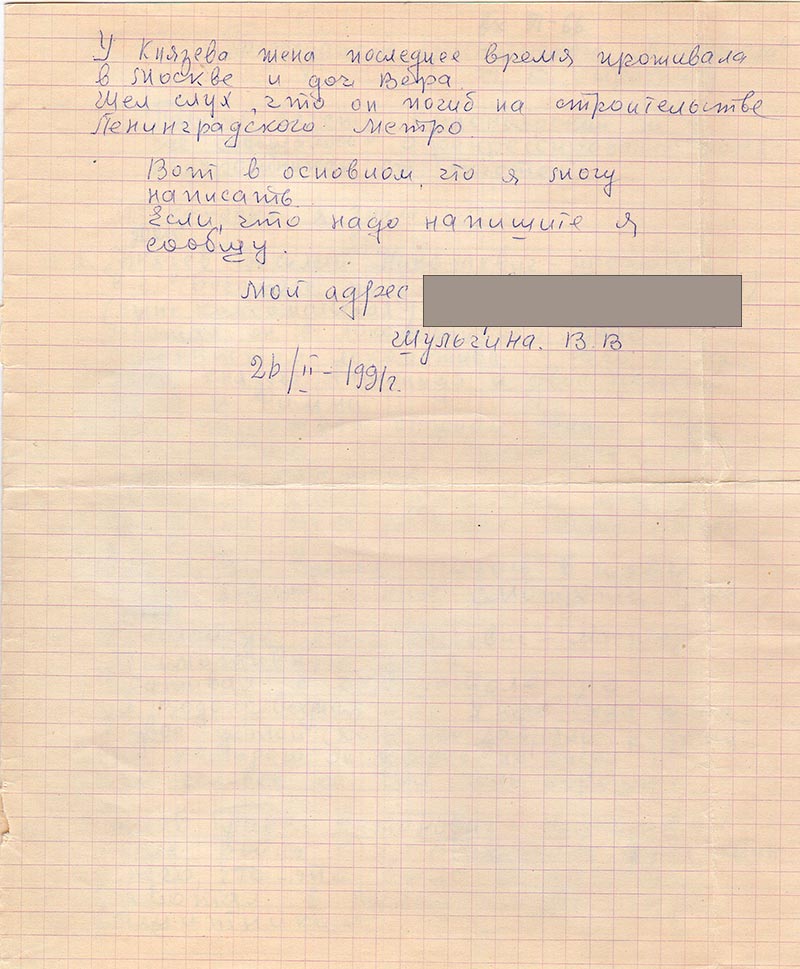 У Князева жена последнее время проживала
в Москве и доч Вера.
Шел слух, что он погиб на строительстве
Ленинградского Метро.
Вот в основном, что я могу
написать.
Если, что надо напишите я
сообщу.
Мой адрес
Шульгина. В. В.
26/II - 1991г.